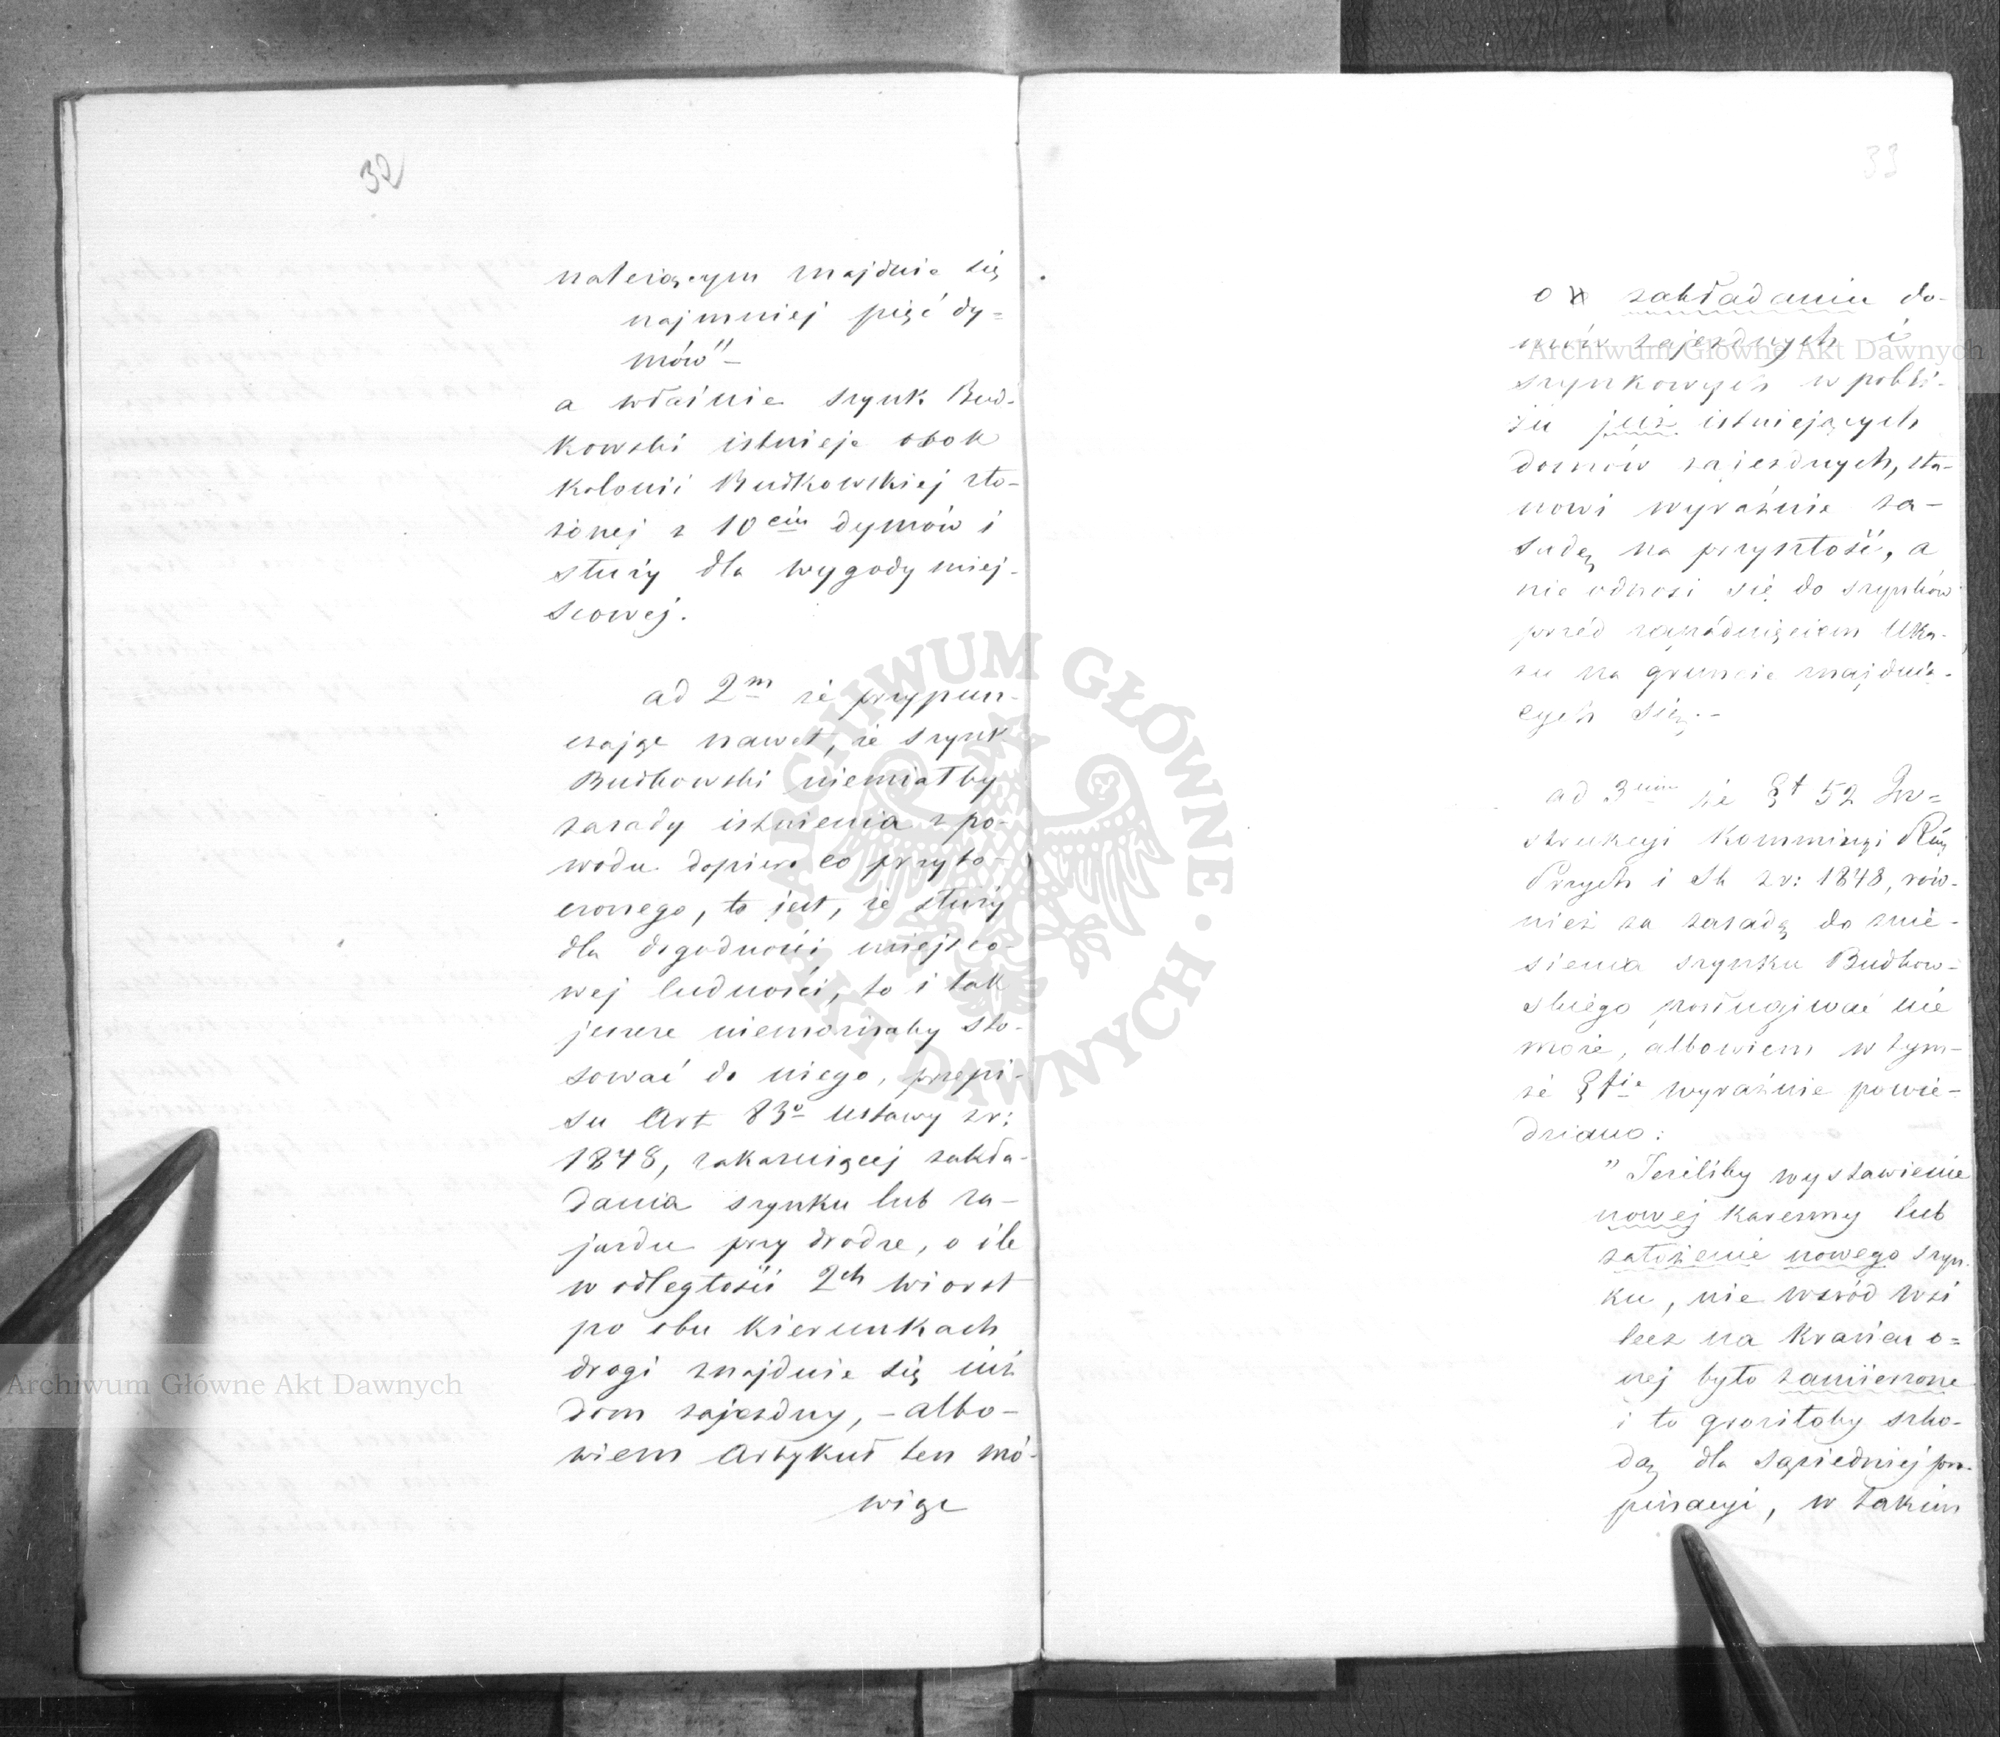 32
należącym znajduie się
najmniej pięć dy=
mów"—
a właśnie szynk Bud-
kowski istnieje obok
kolonii Budkowskiej zło-
żonej z 10ciu dymów i
służy dla wygody miej-
scowej.
ad 2m że przypusz-
czając nawet, że szynk
Budkowski niemiałby
zasady istnienia z po-
wodu dopiero co przyto-
czonego, to jest, że służy
dla dogodności miejsco-
wej ludności, to i tak
jeszcze niemożnaby sto-
sować do niego, przepi-
su Art 83o ustawy z r:
1848, zakazuiącej zakła-
dania szynku lub za-
jazdu przy drodze, o ile
w odległości 2ch wiorst
po obu kierunkach
drogi znajduie się iuż
dom zajezdny, — albo-
wiem Artykuł ten mó-
wiąc
33
o zakładaniu do-
mów zajezdnych i
szynkowych w pobli-
żu już istniejących
domów zajezdnych, sta-
nowi wyraźnie za-
sadę na przyszłość, a
nie odnosi się do szynków
przed zapadnięciem Uka-
zu na gruncie znajduią-
cych się.—
ad 3nim że §t 52 In=
strukcyi Kommissyi Rząd
Przych i Sk z r: 1848, rów-
nież za zasadę do znie-
sienia szynku Budkow-
skiego posługiwać nie
może, albowiem w tym-
że §fie wyraźnie powie-
dziano:
"Jeżeliby wystawienie
nowej karczmy lub
założenie nowego szyn-
ku, nie wśród wsi
lecz na krańcu o=
nej było zamierzone
i to groziłoby szko-
dą dla sąsiedniej pro-
pinacyi, w takim
ARCHIWUM GŁÓWNE · AKT DAWNYCH ·
Archiwum Główne Akt Dawnych
Archiwum Główne Akt Dawnych